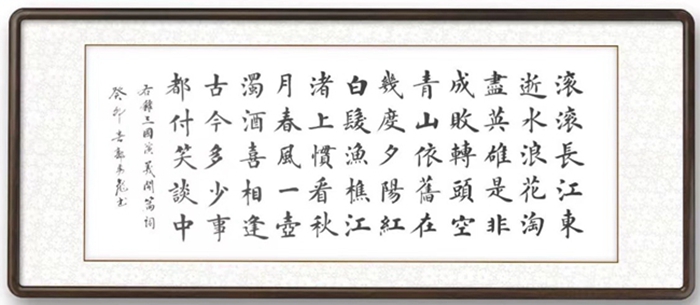 滚滚長江東
逝水浪花淘
盡英雄是非
成敗轉頭空
青山依舊在
幾度夕陽紅
白髮漁樵江
渚上慣看秋
月春風一壺
濁酒喜相逢
古今多少事
都付笑談中
右録三國演義開篇詞
癸卯